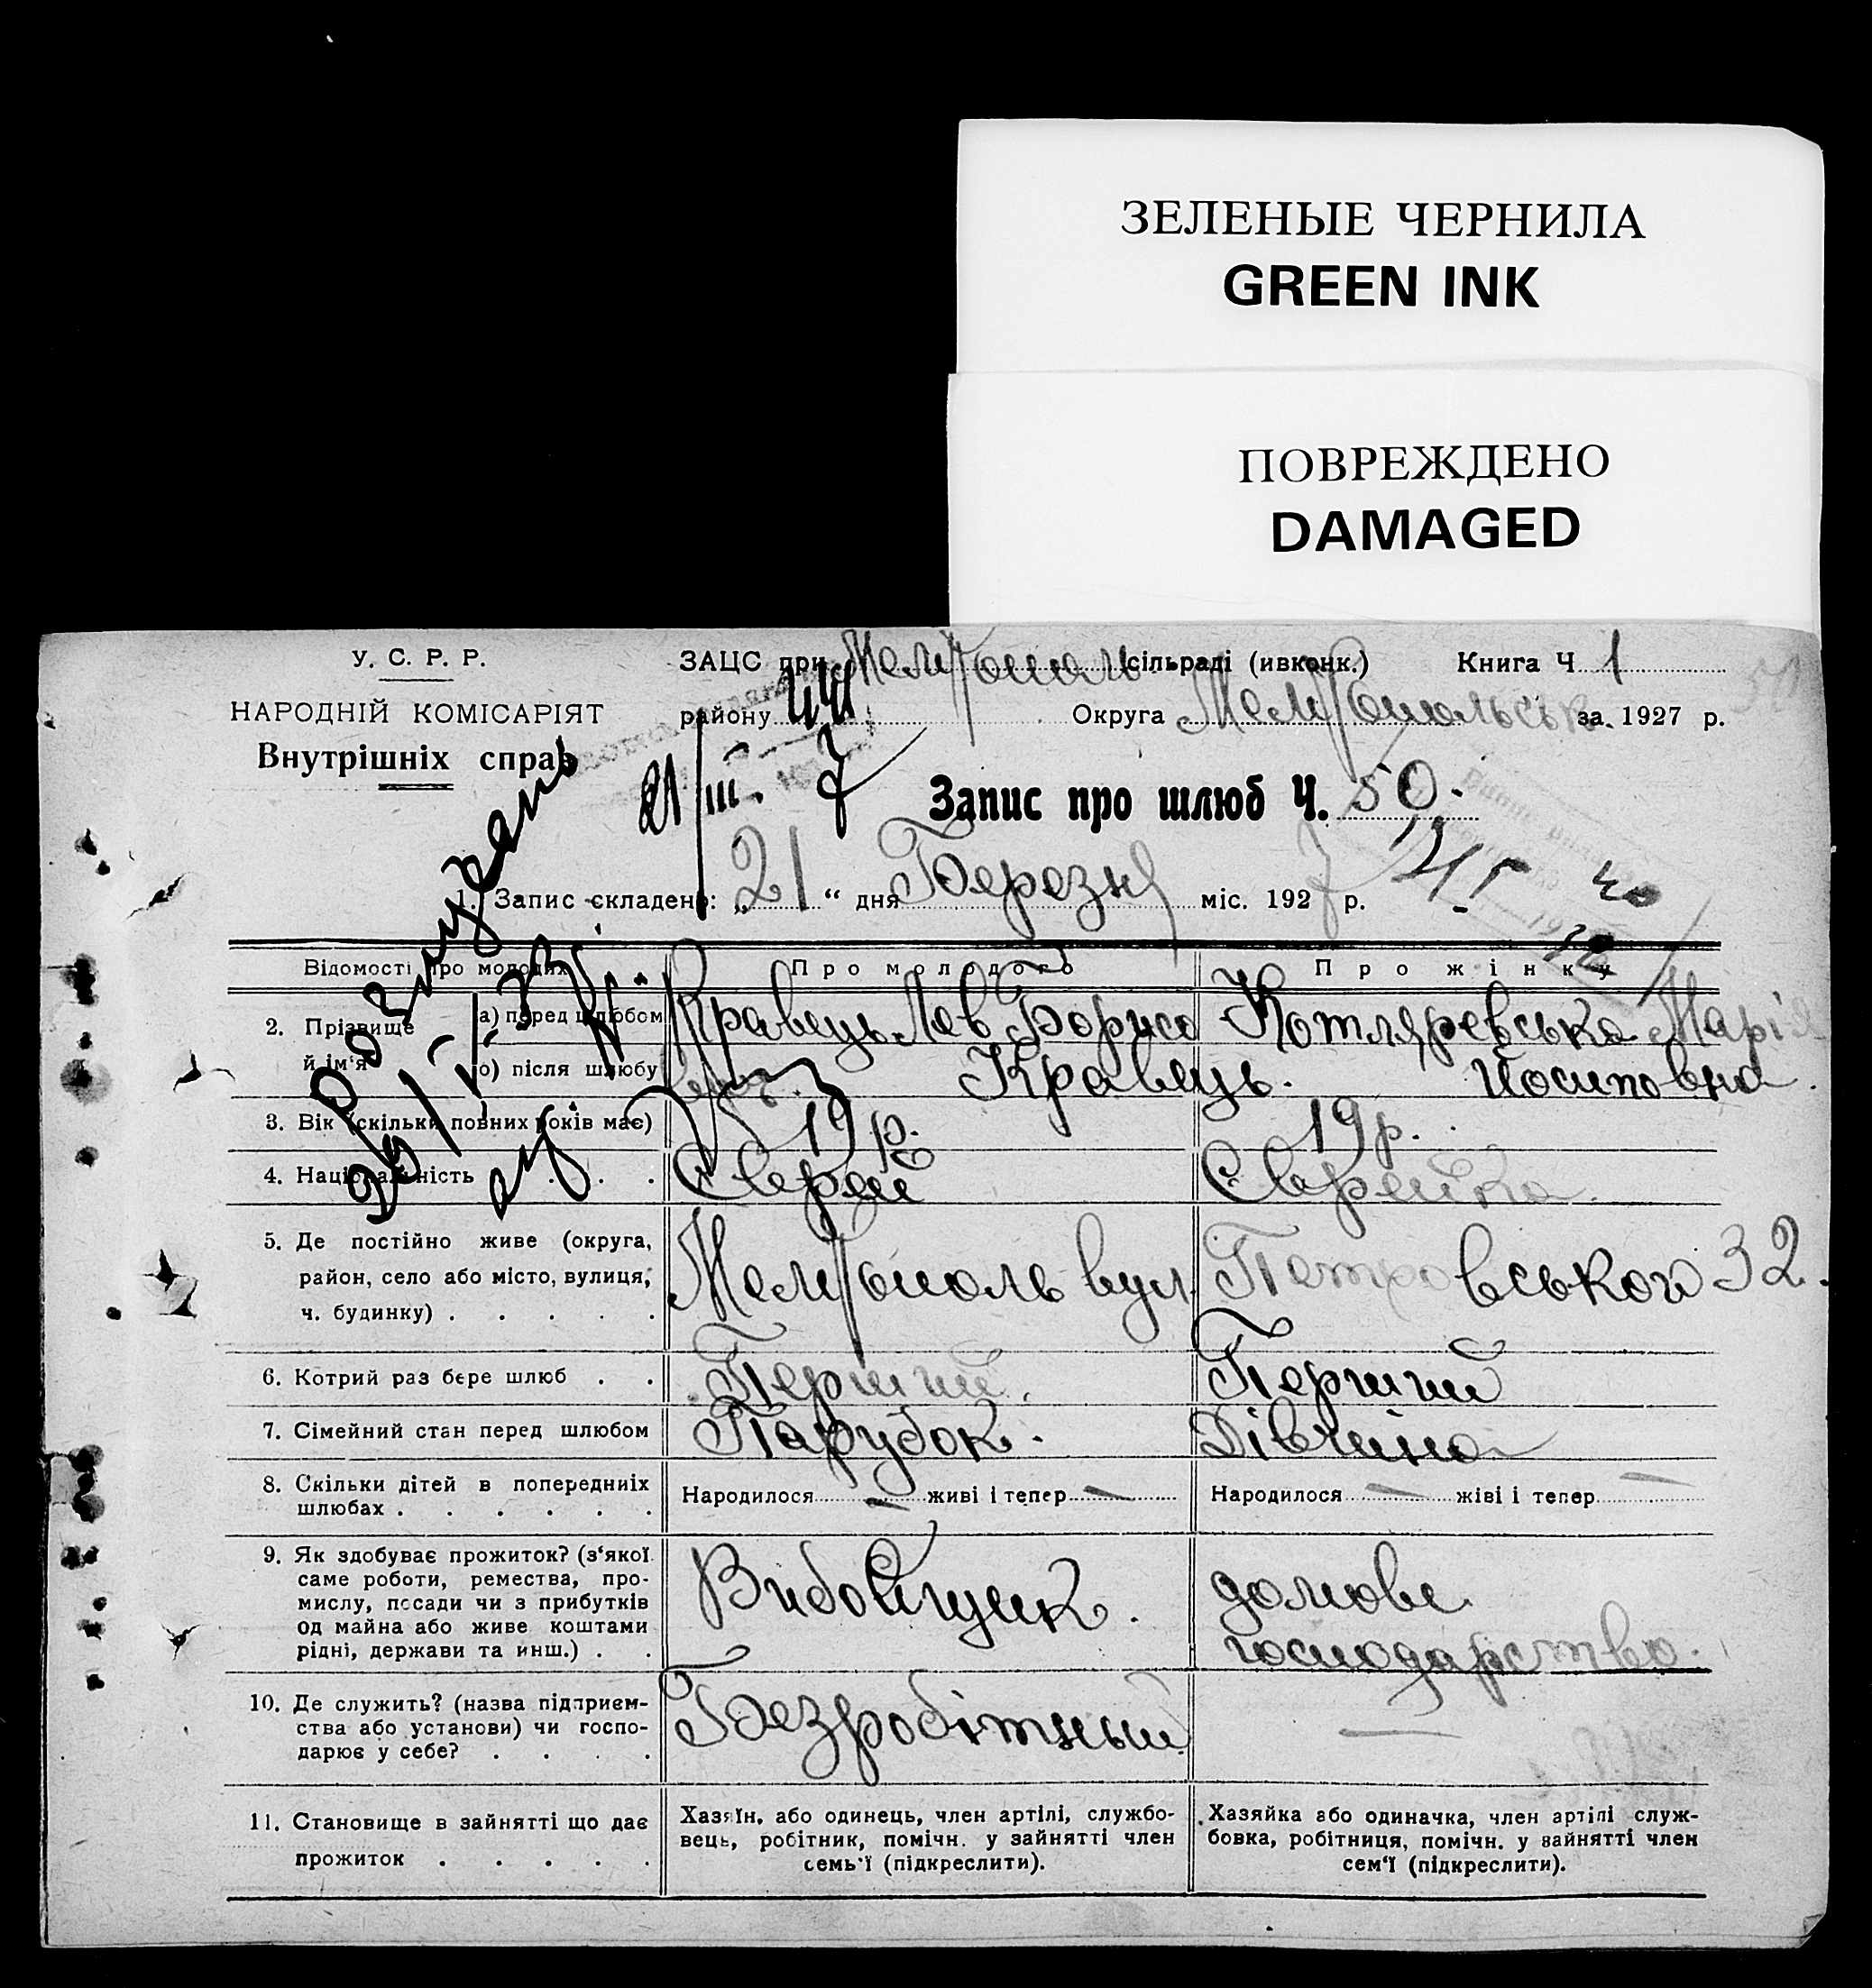 ЗЕЛЕНЫЕ ЧЕРНИЛА
GREEN INK
ПОВРЕЖДЕНО
DAMAGED
У. С. Р. Р.
НАРОДНІЙ КОМІСАРІЯТ
Внутрішніх справ
ЗАЦС при Мелітополь сільраді (ивконк.) Книга Ч 1
району Округа Мелітопольськ за 1927 р.
21/III. 7
Запис про шлюб Ч. 50.
1. Запис складено: „ 21 “ дня Березня міс. 1927 р.
Відомості про молодих Про молодого Про жінку
2. Прізвище й ім'я
а) перед шлюбом Кравець Лев Борисо Котляревська Марія
о) після шлюбу вич. Кравець. Йосиповна.
3. Вік (скільки повних років має) 19 р. 19 р.
4. Національність Єврей Єврейка.
5. Де постійно живе (округа, район, село або місто, вулиця, ч. будинку) Мелітополь вул. Петровського 32.
6. Котрий раз бере шлюб Перший. Перший
7. Сімейний стан перед шлюбом Парубок. Дівчина
8. Скільки дітей в попередниіх шлюбах Народилося — живі і тепер — Народилося — жіві і тепер —
9. Як здобуває прожиток? (з‘якої
саме роботи, ремества, про-
мислу, посади чи з прибутків
од майна або живе коштами
рідні, держави та инш.)
домове
господарство.
10. Де служить? (назва підприєм-
ства або установи) чи госпо-
дарює у себе?
Безробітный —
11. Становище в зайнятті що дає
прожиток
Хазяїн, або одинець, член артілі, службо-
вець, робітник, помічн. у зайнятті член
семь‘ї (підкреслити).
Хазяйка або одиначка, член артілі служ-
бовка, робітниця, помічн. у зайнятті член
сем‘ї (підкреслити).